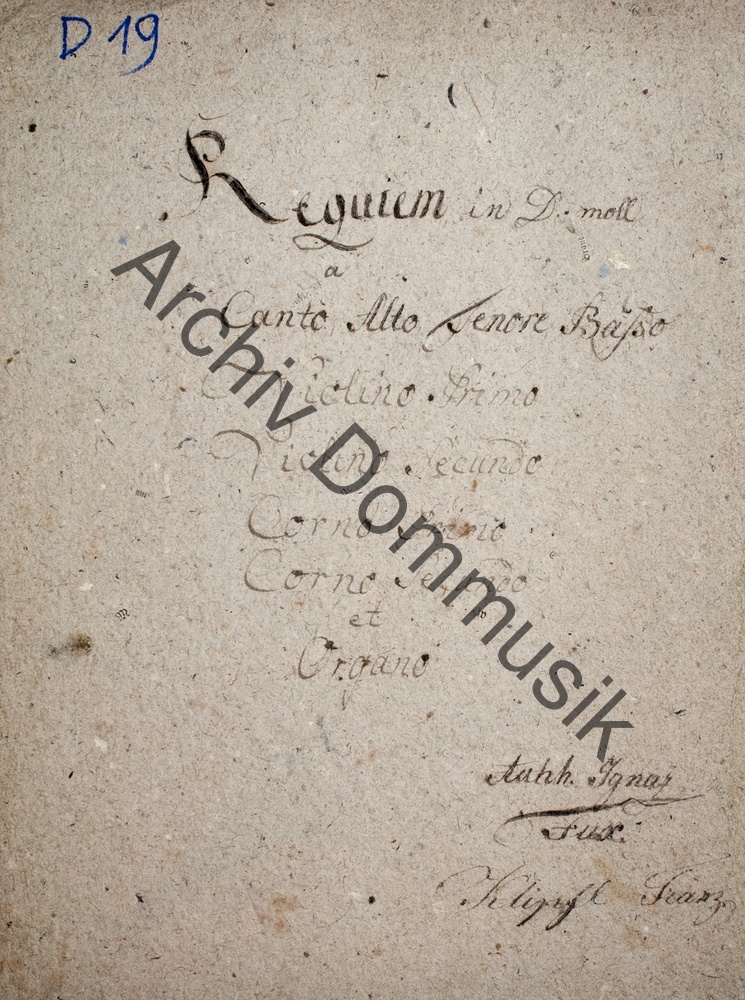 D 19
Requiem in D. moll
a
Canto Alto Tenore Basso
Violino Primo
Violino Secundo
Corno Primo
Corno Secundo
et
Organo
Authh. Ignaz
Fux.
Franz
Archiv Dommusik